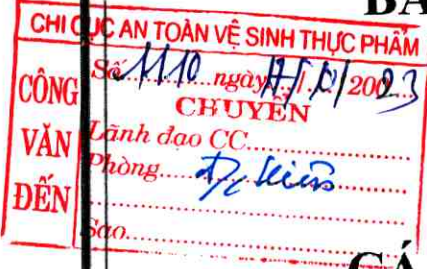 BẢ
CHI CỤC AN TOÀN VỆ SINH THỰC PHẨM
CÔNG VĂN ĐẾN
Số 1110 ngày / /2023
CHUYỂN
Lãnh đạo CC
Phòng Đ/c
Sao
CÁ